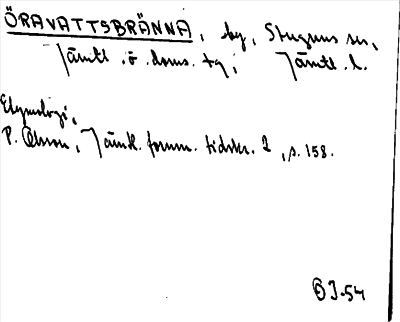 ÖRAVATTSBRÄNNA, by, Stuguns sn,
Jämtl. ö. doms. tg; Jämtl. l.
Etymologi,
P. Olsson, Jämtl. fornm. tidskr. 2, s. 158.
BJ-54